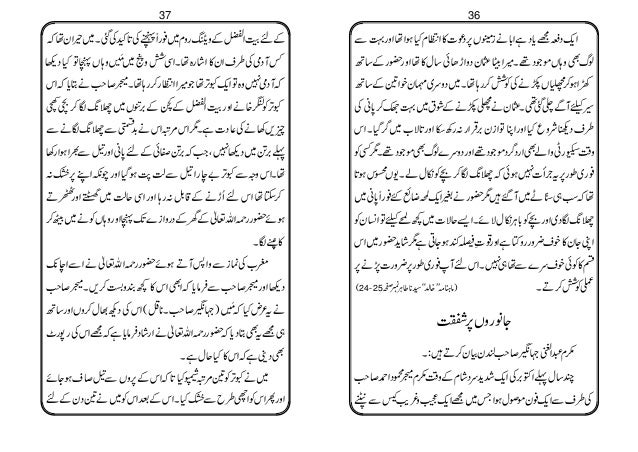 36
ایک دفعہ مجھے یاد ہے ابا نے زمینوں پر دعوت کا انتظام کیا ہوا تھا اور بہت سے
لوگ بھی وہاں موجود تھے۔ میرا بیٹا عثمان دو اڑھائی سال کا تھا اور حضور کے ساتھ
کھڑا ہو کر مچھلیاں پکڑنے کی کوشش کر رہا تھا۔ میں دوسری مہمان خواتین کے ساتھ
سیر کیلئے آگے چلی گئی تھی۔ عثمان نے مچھلی پکڑنے کے شوق میں بہت جھک کر پانی کی
طرف دیکھنا شروع کیا اور اپنا توازن برقرار نہ رکھ سکا اور تالاب میں گر گیا۔ اس
وقت سیکیورٹی والے بھی ارد گرد موجود تھے اور دوسرے لوگ بھی موجود تھے۔ مگر کسی کو
فوری طور پر یہ جرأت نہیں ہوئی کہ چھلانگ لگا کر بچے کو نکال لے۔ یوں محسوس ہوتا
تھا کہ سب ہی سناٹے میں آ گئے ہیں مگر حضور نے بغیر ایک لمحہ ضائع کئے فوراً پانی میں
چھلانگ لگا دی اور بچے کو باہر نکال لائے۔ ایسے حالات میں کچھ لمحے کیلئے تو انسان کو
اپنی جان کا خوف ضرور روکتا ہے اور قوت فیصلہ کند ہو جاتی ہے مگر شاید حضور میں اس
قسم کا کوئی خوف سرے سے تھا ہی نہیں۔ اس لئے آپ فوری طور پر ضرورت پڑنے پر
عملی کوشش کرتے۔ (ماہنامہ ''خالد'' سیدنا طاہر نمبر صفحہ 25-24)
جانوروں پر شفقت
مکرم عبدالغنی جہانگیر صاحب لندن بیان کرتے ہیں:۔
چند سال پہلے اکتوبر کی ایک شدید سرد شام کے وقت مکرم میجر محمود احمد صاحب
کی طرف سے ایک فون موصول ہوا جس میں مجھے ایک عجیب و غریب کیس سے نپٹنے
37
کے لئے بیت الفضل کے ویٹنگ روم میں فوراً پہنچنے کی تاکید کی گئی۔ میں حیران تھا کہ
کس آدمی کی طرف ان کا اشارہ تھا۔ اسی شش و پنج میں مَیں وہاں پہنچا تو کیا دیکھا
کہ آدمی نہیں وہ تو ایک کبوتر تھا جو میرا انتظار کر رہا تھا۔ میجر صاحب نے بتایا کہ اس
کبوتر کو لنگر خانے اور بیت الفضل کے کچن کے برتنوں میں چھلانگ لگا کر بچی کھچی
چیزیں کھانے کی عادت ہے۔ مگر اس مرتبہ اس نے بدقسمتی سے چھلانگ لگانے سے
پہلے برتن میں دیکھا نہیں، جب کہ برتن صفائی کے لئے پانی اور تیل سے بھرا ہوا رکھا
تھا۔ اس وجہ سے کبوتر بے چارا تیل سے لت پت ہو گیا اور چونکہ اپنے پر خشک نہ
کر سکتا تھا اس لئے اُڑنے کے قابل نہ رہا اور اسی حالت میں گھسٹتے اور ٹھٹھرتے
ہوئے حضور رحمہ اللہ تعالیٰ کے گھر کے دروازے تک پہنچا اور وہاں کونے میں بیٹھ کر
کانپنے لگا۔
مغرب کی نماز سے واپس آتے ہوئے حضور رحمہ اللہ تعالیٰ نے اسے اچانک
دیکھا اور میجر صاحب سے فرمایا کہ ابھی اس کا کچھ بندوبست کریں۔ میجر صاحب
نے یہ عرض کیا کہ مَیں (جہانگیر صاحب۔ ناقل) اس کی دیکھ بھال کروں اور ساتھ
ہی مجھے یہ بھی بتا دیا کہ حضور رحمہ اللہ تعالیٰ نے ارشاد فرمایا ہے کہ مجھے اس کی رپورٹ
بھی دینی ہے کہ اس کا کیا حال ہے۔
میں نے کبوتر کو تین مرتبہ شیمپو کیا تا کہ اس کے پروں سے تیل صاف ہو جائے
اور پھر اس کو اچھی طرح سے خشک کیا۔ اس کے بعد اس کو میں نے تین دن کے لئے